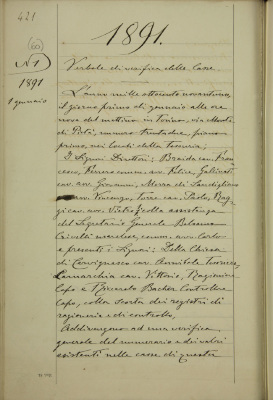 421
(60)
1891.
N 1
1891
1 gennaio
Verbale di verifica delle Casse
L'anno mille ottocento novantuno,
il giorno primo di gennaio alle ore
nove del mattino in Torino, via Monte
di Pietà, numero trentadue, piano
primo, nei locali della tesoreria;
I Signori Direttori; Braida cav. Fran-
cesco, Ferrero comm. avv. Felice, Gallinati
cav. avv. Giovanni, Morra di
cav. Vincenzo, Torre cav. Paolo, Rag-
gi cav. avv. Pietro colla assistenza
del Segretario Generale
comm. avv. Carlo
e presenti i Signori; Della Chiesa
di Cervignasco cav. Annibale Tesoriere,
cav. Vittorio, Ragioniere
Capo e Bacher Controllore
Capo, colla scorta dei registri di
ragioneria e di controllo,
Addivengono ad una verifica
generale del numerario e dei valori
esistenti nelle casse di questi